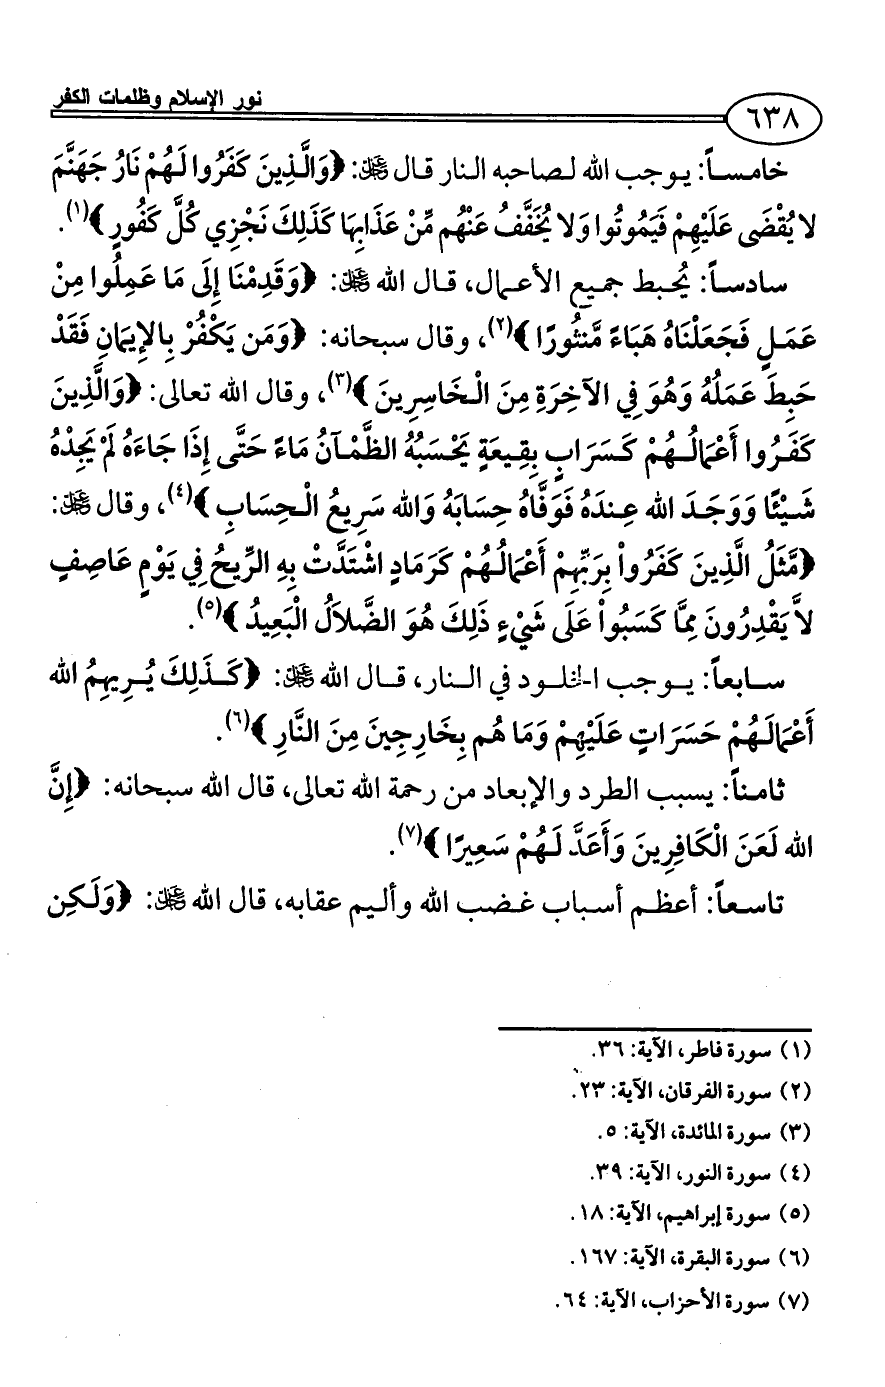 نور الإسلام وظلمات الكفر
٦٣٨
خامساً: يوجب الله لصاحبه النار قال ﷻ: ﴿وَالَّذِينَ كَفَرُوا لَهُمْ نَارُ جَهَنَّمَ
لا يُقْضَى عَلَيْهِمْ فَيَمُوتُوا وَلا يُخَفَّفُ عَنْهُم مِّنْ عَذَابِهَا كَذَلِكَ نَجْزِي كُلَّ كَفُورٍ﴾(١).
سادساً: يُحبط جميع الأعمال، قال الله ﷻ: ﴿وَقَدِمْنَا إِلَى مَا عَمِلُوا مِنْ
عَمَلٍ فَجَعَلْنَاهُ هَبَاءً مَّنثُورًا﴾(٢)، وقال سبحانه: ﴿وَمَن يَكْفُرْ بِالإِيمَانِ فَقَدْ
حَبِطَ عَمَلُهُ وَهُوَ فِي الآخِرَةِ مِنَ الْخَاسِرِينَ﴾(٣)، وقال الله تعالى: ﴿وَالَّذِينَ
كَفَرُوا أَعْمَالُهُمْ كَسَرَابٍ بِقِيعَةٍ يَحْسَبُهُ الظَّمْآنُ مَاءً حَتَّى إِذَا جَاءَهُ لَمْ يَجِدْهُ
شَيْئًا وَوَجَدَ الله عِندَهُ فَوَفَّاهُ حِسَابَهُ وَالله سَرِيعُ الْحِسَابِ﴾(٤)، وقال ﷻ:
﴿مَّثَلُ الَّذِينَ كَفَرُواْ بِرَبِّهِمْ أَعْمَالُهُمْ كَرَمَادٍ اشْتَدَّتْ بِهِ الرِّيحُ فِي يَوْمٍ عَاصِفٍ
لاَّ يَقْدِرُونَ مِمَّا كَسَبُواْ عَلَى شَيْءٍ ذَلِكَ هُوَ الضَّلاَلُ الْبَعِيدُ﴾(٥).
سابعاً: يوجب الخلود في النار، قال الله ﷻ: ﴿كَذَلِكَ يُرِيهِمُ الله
أَعْمَالَهُمْ حَسَرَاتٍ عَلَيْهِمْ وَمَا هُم بِخَارِجِينَ مِنَ النَّارِ﴾(٦).
ثامناً: يسبب الطرد والإبعاد من رحمة الله تعالى، قال الله سبحانه: ﴿إِنَّ
الله لَعَنَ الْكَافِرِينَ وَأَعَدَّ لَهُمْ سَعِيرًا﴾(٧).
تاسعاً: أعظم أسباب غضب الله وأليم عقابه، قال الله ﷻ: ﴿وَلَكِن
(١) سورة فاطر، الآية: ٣٦.
(٢) سورة الفرقان، الآية: ٢٣.
(٣) سورة المائدة، الآية: ٥.
(٤) سورة النور، الآية: ٣٩.
(٥) سورة إبراهيم، الآية: ١٨.
(٦) سورة البقرة، الآية: ١٦٧.
(٧) سورة الأحزاب، الآية: ٦٤.